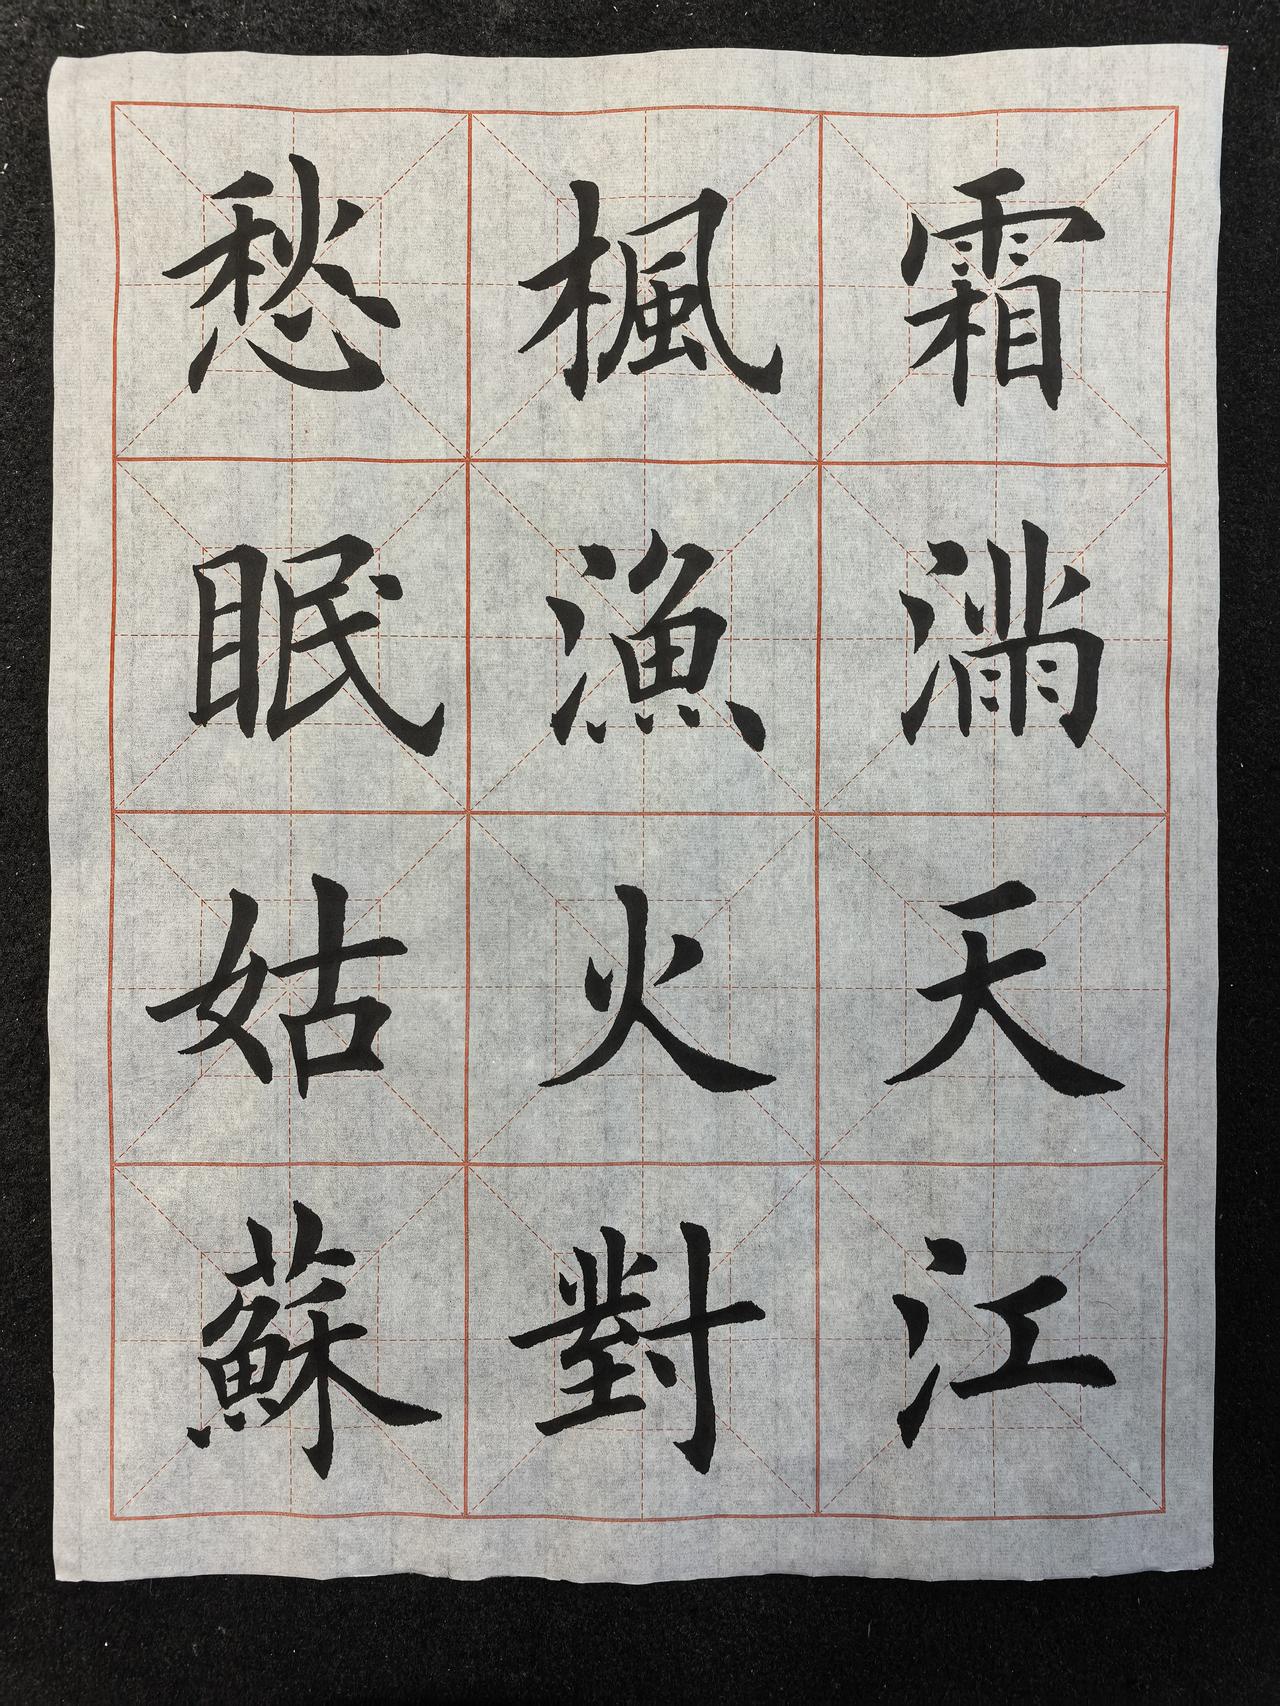 霜滿天江
楓漁火對
愁眠姑蘇